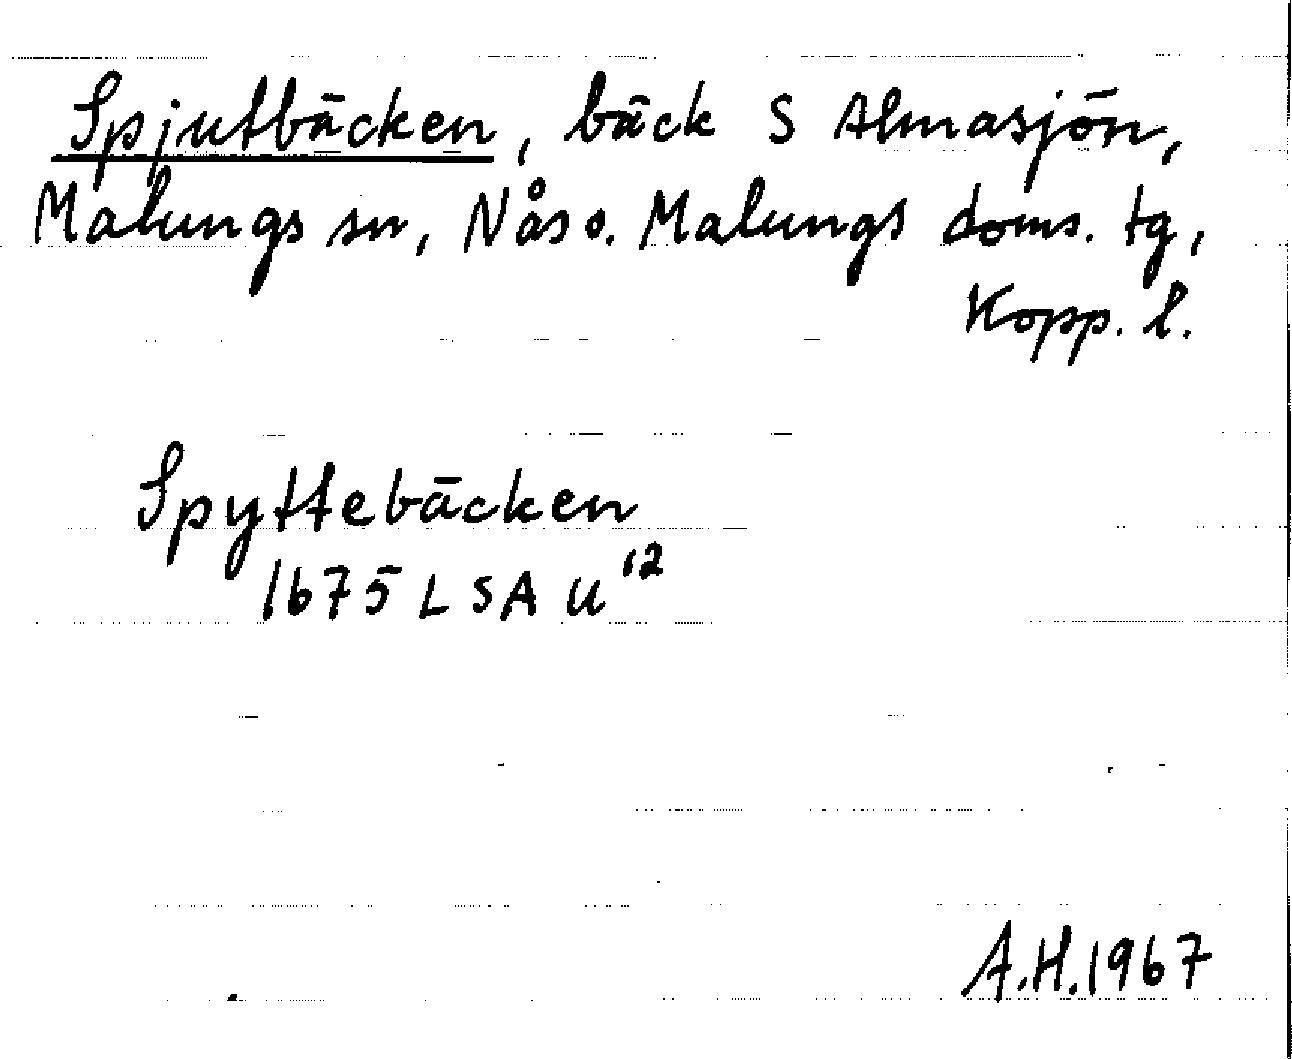 Spjutbäcken, bäck S Almasjön,
Malungs sn, Nås o. Malungs doms. tg,
Kopp. l.
Spyttebäcken
1675 LSA U 12
A.H. 1967